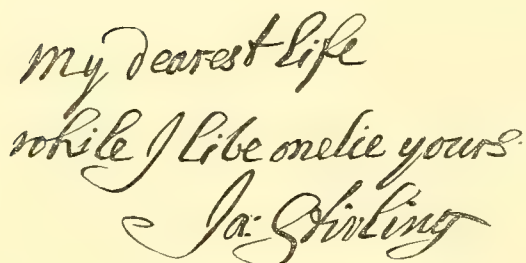 my dearest Life
while I libe onelie yours.
Ja: Stirling